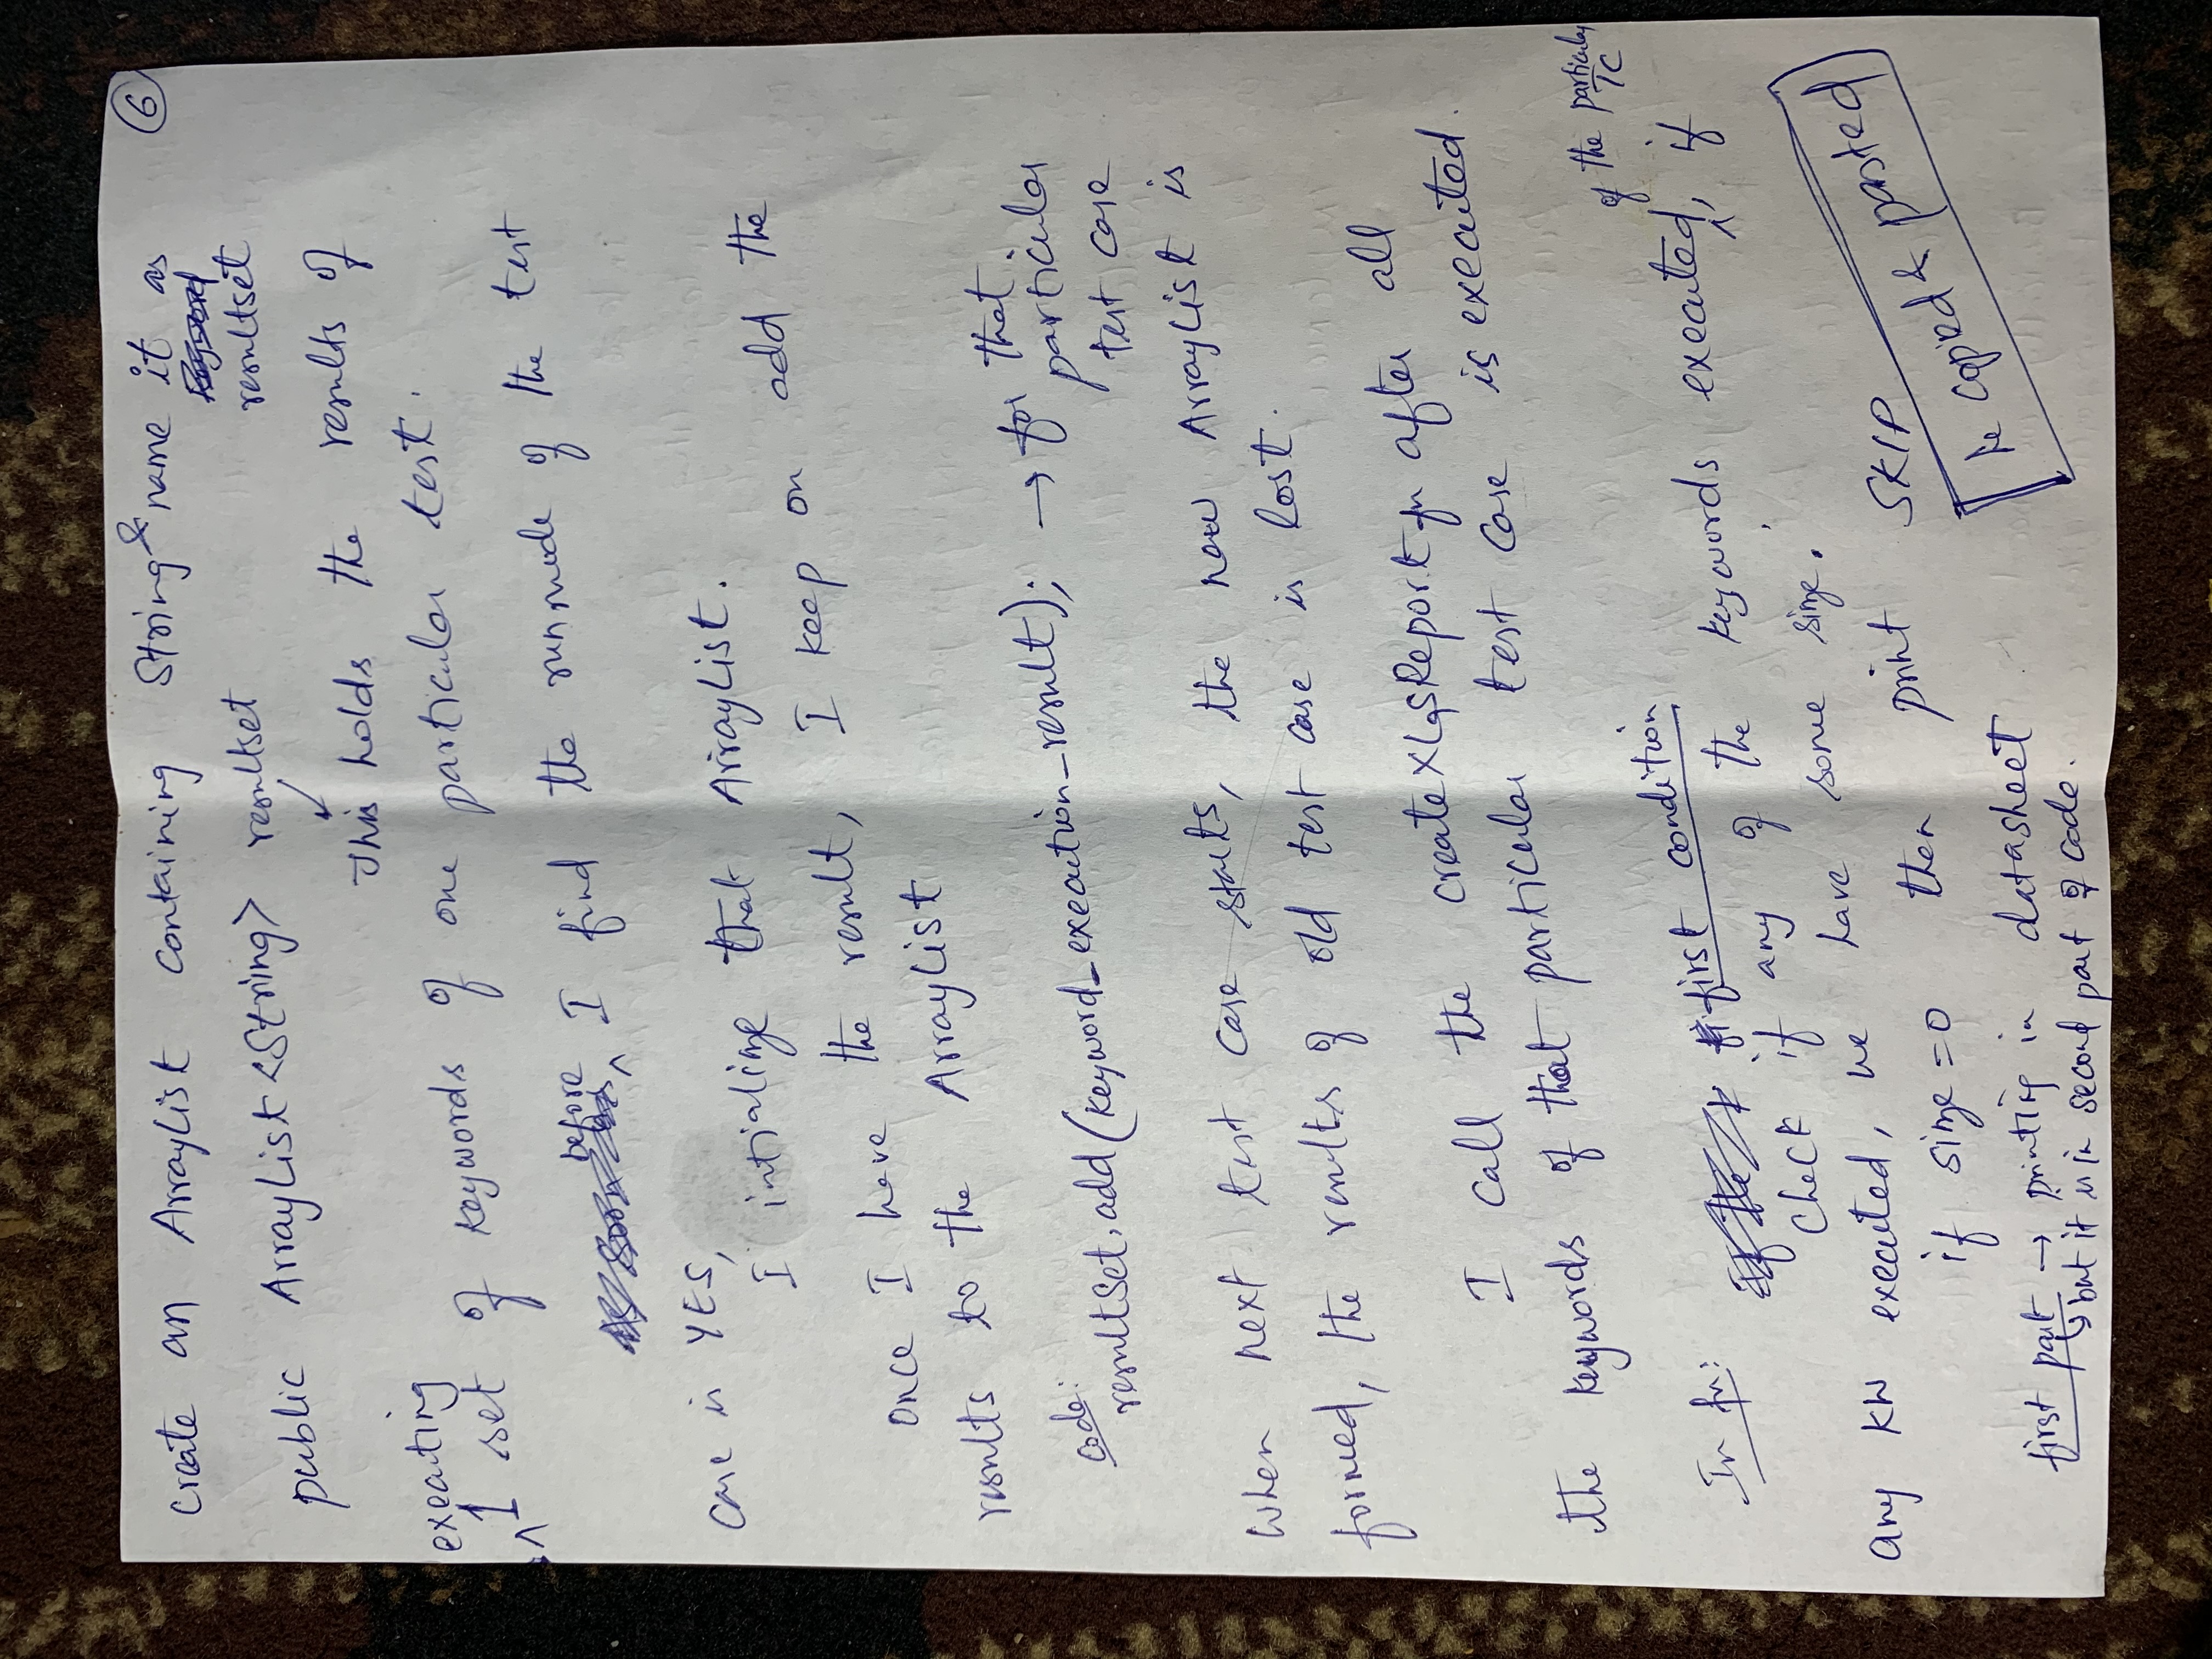 6
Create an ArrayList containing String & name it as
resultset
public ArrayList<String> resultset
This holds the results of
executing
1 set of keywords of one particular test.
before I find the runmode of the test
case is YES,
I intialize that ArrayList.
Once I have the result, I keep on add the
results to the ArrayList
code:
resultSet.add(keyword_execution_result); → for that
particular
test case
When next test case starts, the new ArrayList is
formed, the results of old test case is lost.
I call the createXLSReport fn after all
the keywords of that particular test case is executed.
of the particular
TC
In fn: first condition
Check if any of the keywords executed, if
any KW executed, we have some size.
if size = 0 then print SKIP
ie copied & pasted
first part → printing in datasheet
but it is in second part of code.